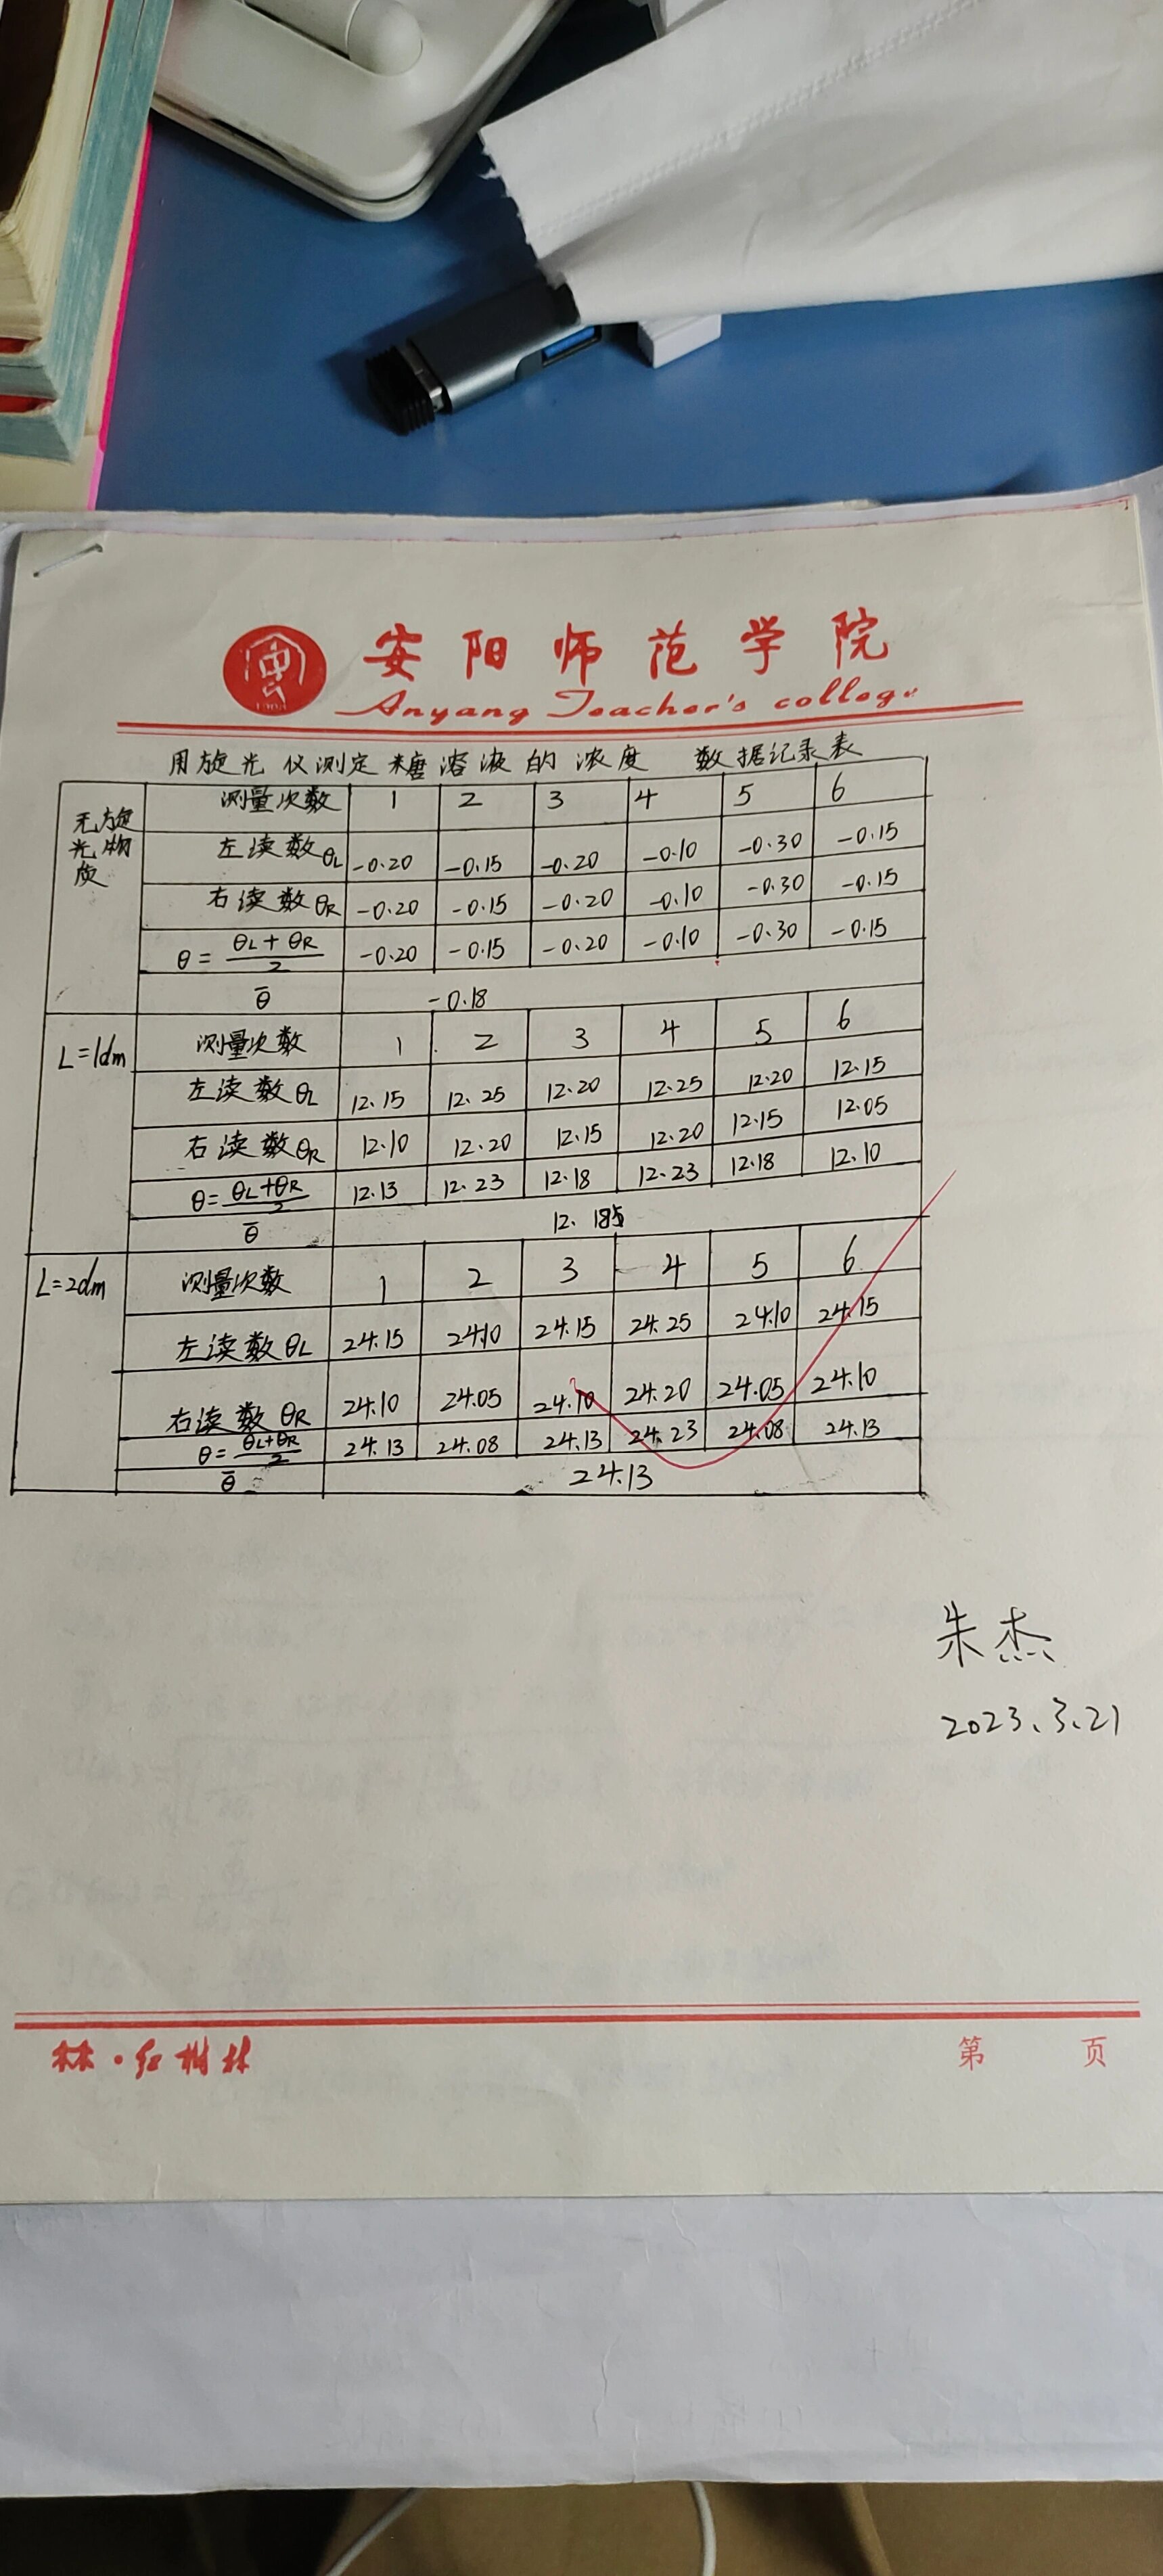 安阳师范学院
Anyang Teacher's college
用旋光仪测定糖溶液的浓度 数据记录表
无旋光物质 测量次数 1 2 3 4 5 6
左读数θL -0.20 -0.15 -0.20 -0.10 -0.30 -0.15
右读数θR -0.20 -0.15 -0.20 -0.10 -0.30 -0.15
θ=(θL+θR)/2 -0.20 -0.15 -0.20 -0.10 -0.30 -0.15
θ̄ -0.18
L=1dm 测量次数 1 2 3 4 5 6
左读数θL 12.15 12.25 12.20 12.25 12.20 12.15
右读数θR 12.10 12.20 12.15 12.20 12.15 12.05
θ=(θL+θR)/2 12.13 12.23 12.18 12.23 12.18 12.10
θ̄ 12.185
L=2dm 测量次数 1 2 3 4 5 6
左读数θL 24.15 24.10 24.15 24.25 24.10 24.15
右读数θR 24.10 24.05 24.10 24.20 24.05 24.10
θ=(θL+θR)/2 24.13 24.08 24.13 24.23 24.08 24.13
θ̄ 24.13
朱杰
2023.3.21
林·红树林
第 页